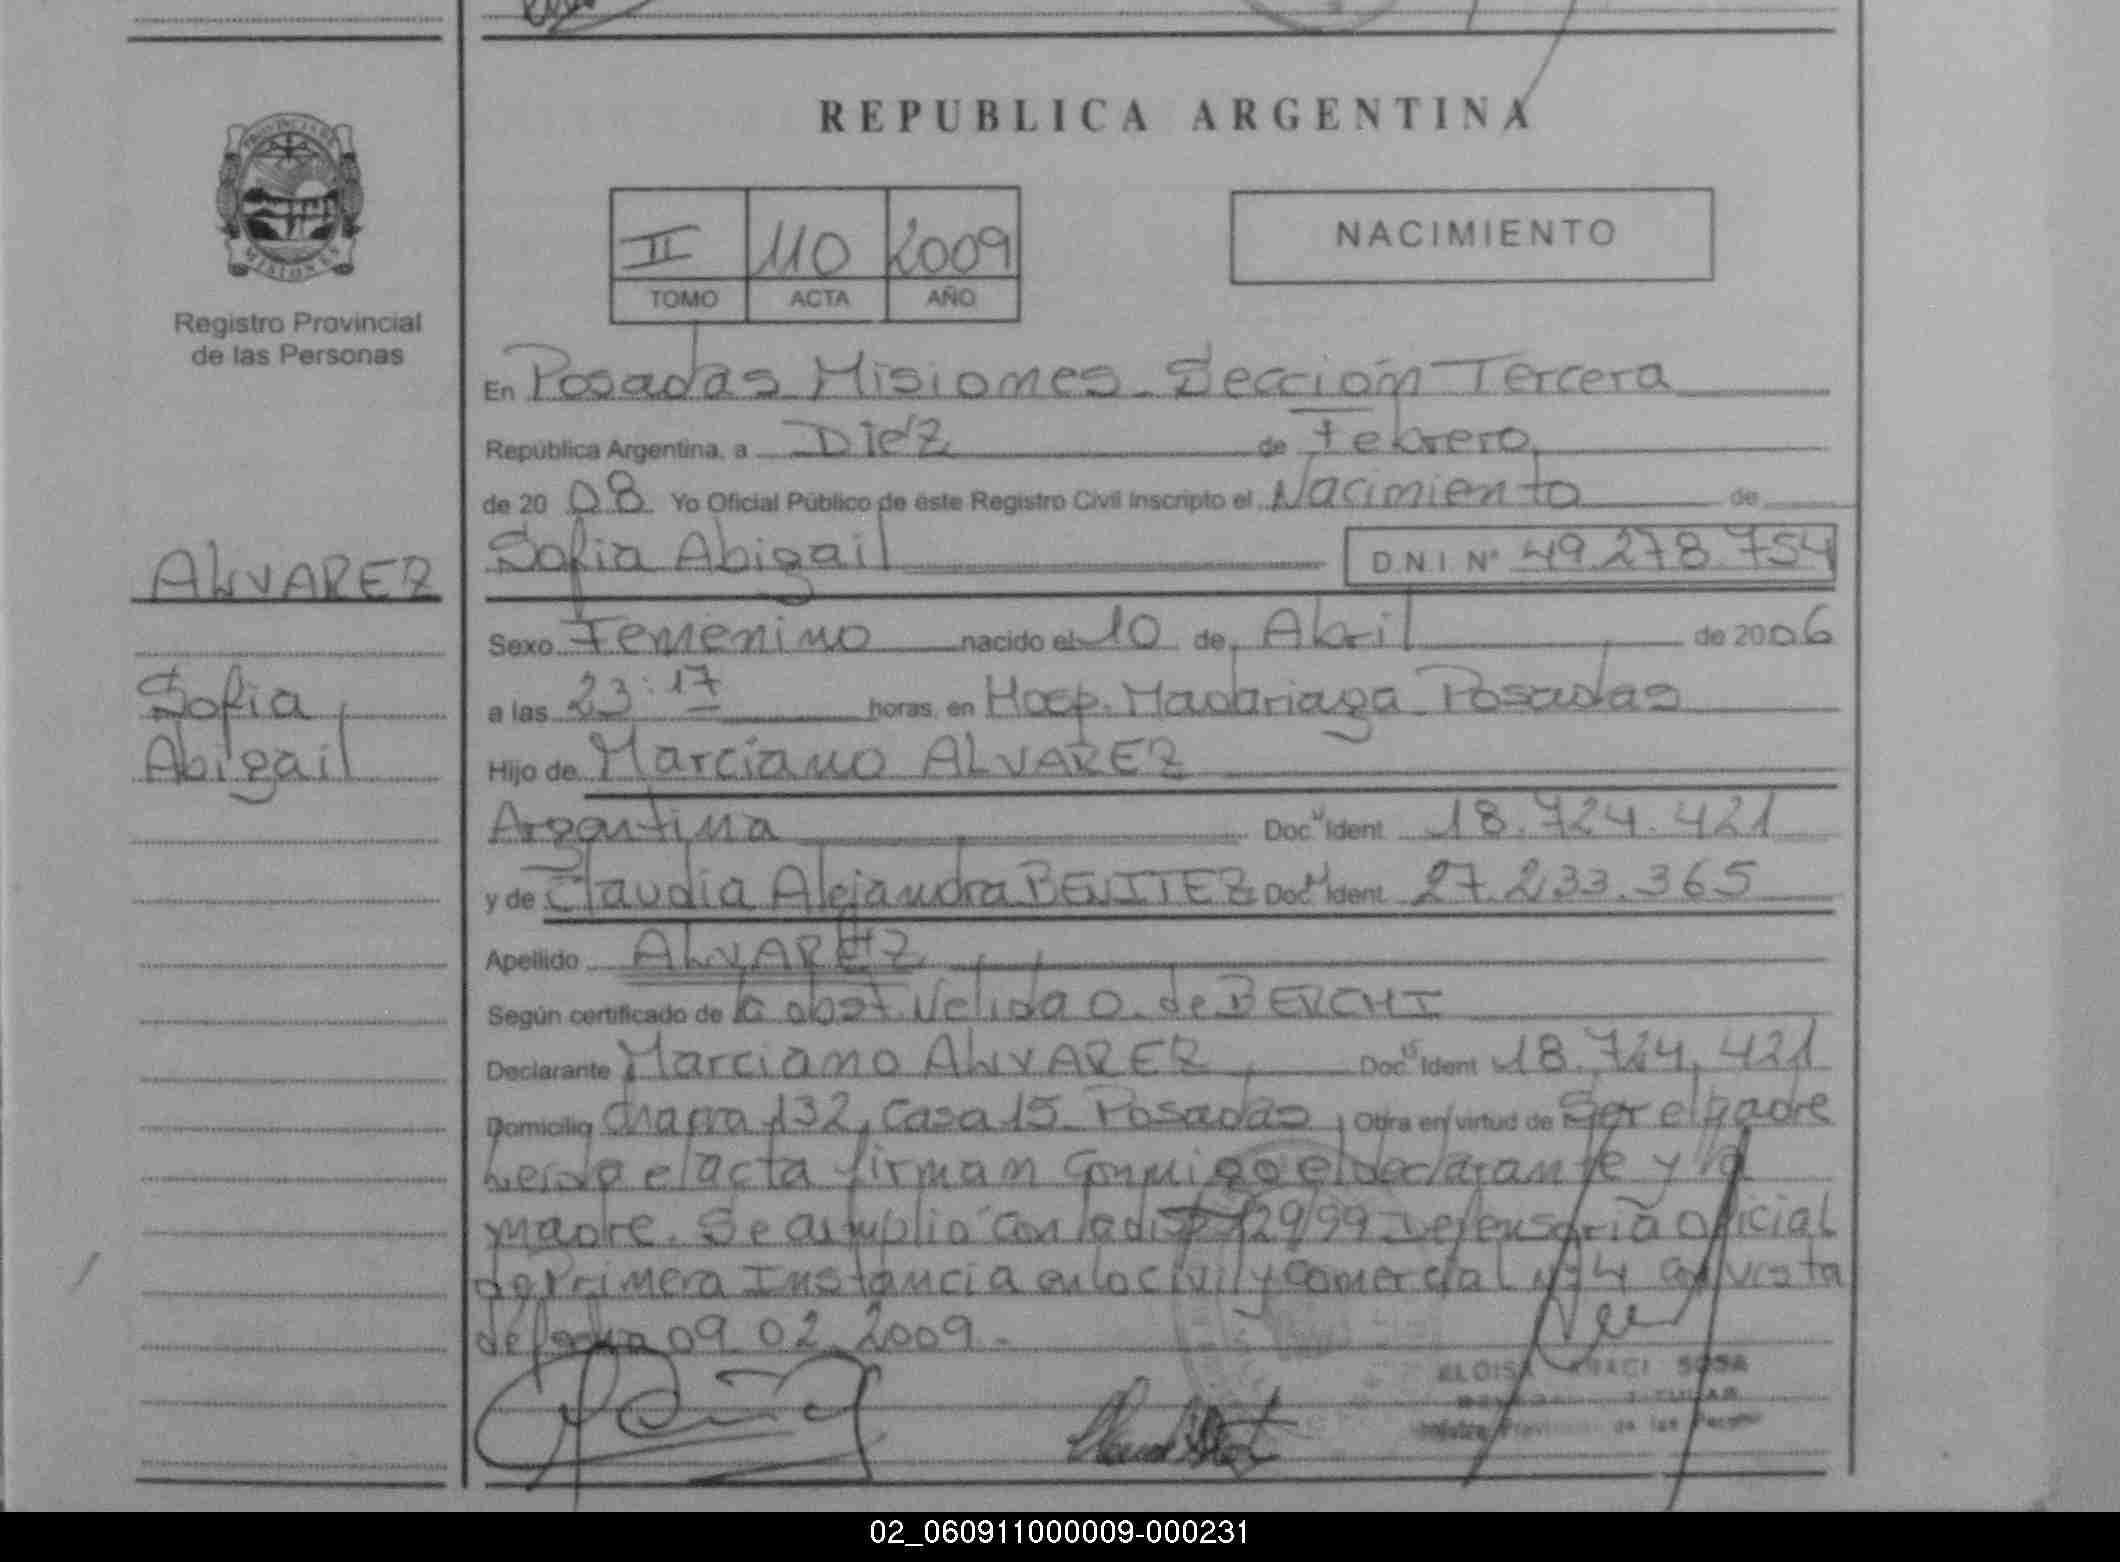 REPUBLICA ARGENTINA
PROVINCIA DE
MISIONES
Registro Provincial
de las Personas
II 110 2009
TOMO ACTA AÑO
NACIMIENTO
En Posadas Misiones Sección Tercera
República Argentina, a Diez de Febrero
de 20 08 Yo Oficial Público de éste Registro Civil Inscripto el Nacimiento de
ALVAREZ
Sofia
Abigail
Sofia Abigail D.N.I. Nº 49.278.754
Sexo Femenino nacido el 10 de Abril de 2006
a las 23:17 horas, en Hosp. Madariaga Posadas
Hijo de Marciano ALVAREZ
Argentina Doc. Ident 18.724.421
y de Claudia Alejandra BENITEZ Doc. Ident 27.233.365
Apellido ALVAREZ
Según certificado de la obst. Velida O. de BERCHI
Declarante Marciano ALVAREZ Doc. Ident 18.724.421
Domicilio chacra 132, Casa 15 Posadas Obra en virtud de Ser el padre
Leida el acta firman Conmigo el declarante y la
madre. Se cumplio con la disp 729/99 Defensoria Oficial
de Primera Instancia en lo civil y comercial Nº 4 con vista
de fecha 09.02.2009.-
SOSA
TITULAR
de las
02_060911000009-000231